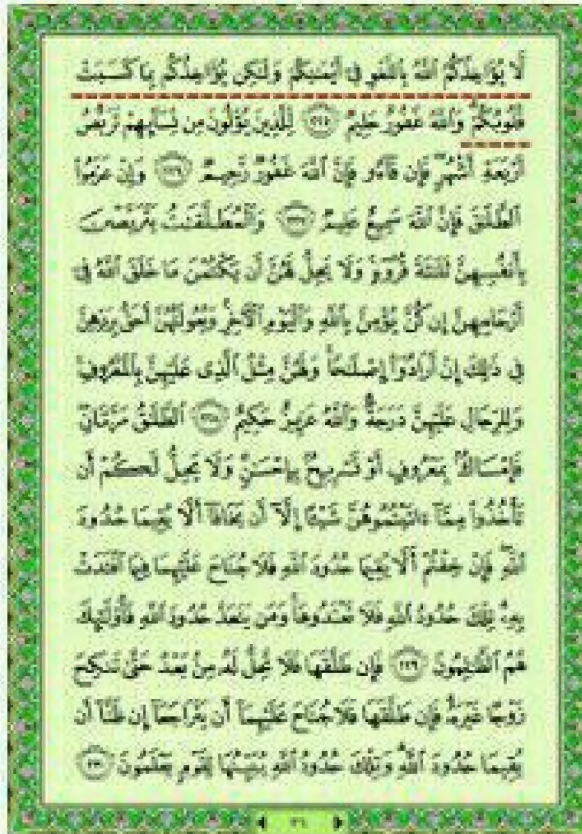 لَّا يُؤَاخِذُكُمُ ٱللَّهُ بِٱللَّغْوِ فِىٓ أَيْمَـٰنِكُمْ وَلَـٰكِن يُؤَاخِذُكُم بِمَا كَسَبَتْ
قُلُوبُكُمْ ۗ وَٱللَّهُ غَفُورٌ حَلِيمٌ ﴿٢٢٥﴾ لِّلَّذِينَ يُؤْلُونَ مِن نِّسَآئِهِمْ تَرَبُّصُ
أَرْبَعَةِ أَشْهُرٍ ۖ فَإِن فَآءُو فَإِنَّ ٱللَّهَ غَفُورٌ رَّحِيمٌ ﴿٢٢٦﴾ وَإِنْ عَزَمُوا۟
ٱلطَّلَـٰقَ فَإِنَّ ٱللَّهَ سَمِيعٌ عَلِيمٌ ﴿٢٢٧﴾ وَٱلْمُطَلَّقَـٰتُ يَتَرَبَّصْنَ
بِأَنفُسِهِنَّ ثَلَـٰثَةَ قُرُوٓءٍ ۚ وَلَا يَحِلُّ لَهُنَّ أَن يَكْتُمْنَ مَا خَلَقَ ٱللَّهُ فِىٓ
أَرْحَامِهِنَّ إِن كُنَّ يُؤْمِنَّ بِٱللَّهِ وَٱلْيَوْمِ ٱلْـَٔاخِرِ ۚ وَبُعُولَتُهُنَّ أَحَقُّ بِرَدِّهِنَّ
فِى ذَٰلِكَ إِنْ أَرَادُوٓا۟ إِصْلَـٰحًا ۚ وَلَهُنَّ مِثْلُ ٱلَّذِى عَلَيْهِنَّ بِٱلْمَعْرُوفِ ۚ
وَلِلرِّجَالِ عَلَيْهِنَّ دَرَجَةٌ ۗ وَٱللَّهُ عَزِيزٌ حَكِيمٌ ﴿٢٢٨﴾ ٱلطَّلَـٰقُ مَرَّتَانِ ۖ
فَإِمْسَاكٌۢ بِمَعْرُوفٍ أَوْ تَسْرِيحٌۢ بِإِحْسَـٰنٍ ۗ وَلَا يَحِلُّ لَكُمْ أَن
تَأْخُذُوا۟ مِمَّآ ءَاتَيْتُمُوهُنَّ شَيْـًٔا إِلَّآ أَن يَخَافَآ أَلَّا يُقِيمَا حُدُودَ
ٱللَّهِ ۖ فَإِنْ خِفْتُمْ أَلَّا يُقِيمَا حُدُودَ ٱللَّهِ فَلَا جُنَاحَ عَلَيْهِمَا فِيمَا ٱفْتَدَتْ
بِهِۦ ۗ تِلْكَ حُدُودُ ٱللَّهِ فَلَا تَعْتَدُوهَا ۚ وَمَن يَتَعَدَّ حُدُودَ ٱللَّهِ فَأُو۟لَـٰٓئِكَ
هُمُ ٱلظَّـٰلِمُونَ ﴿٢٢٩﴾ فَإِن طَلَّقَهَا فَلَا تَحِلُّ لَهُۥ مِنۢ بَعْدُ حَتَّىٰ تَنكِحَ
زَوْجًا غَيْرَهُۥ ۗ فَإِن طَلَّقَهَا فَلَا جُنَاحَ عَلَيْهِمَآ أَن يَتَرَاجَعَآ إِن ظَنَّآ أَن
يُقِيمَا حُدُودَ ٱللَّهِ ۗ وَتِلْكَ حُدُودُ ٱللَّهِ يُبَيِّنُهَا لِقَوْمٍ يَعْلَمُونَ ﴿٢٣٠﴾
٣٦